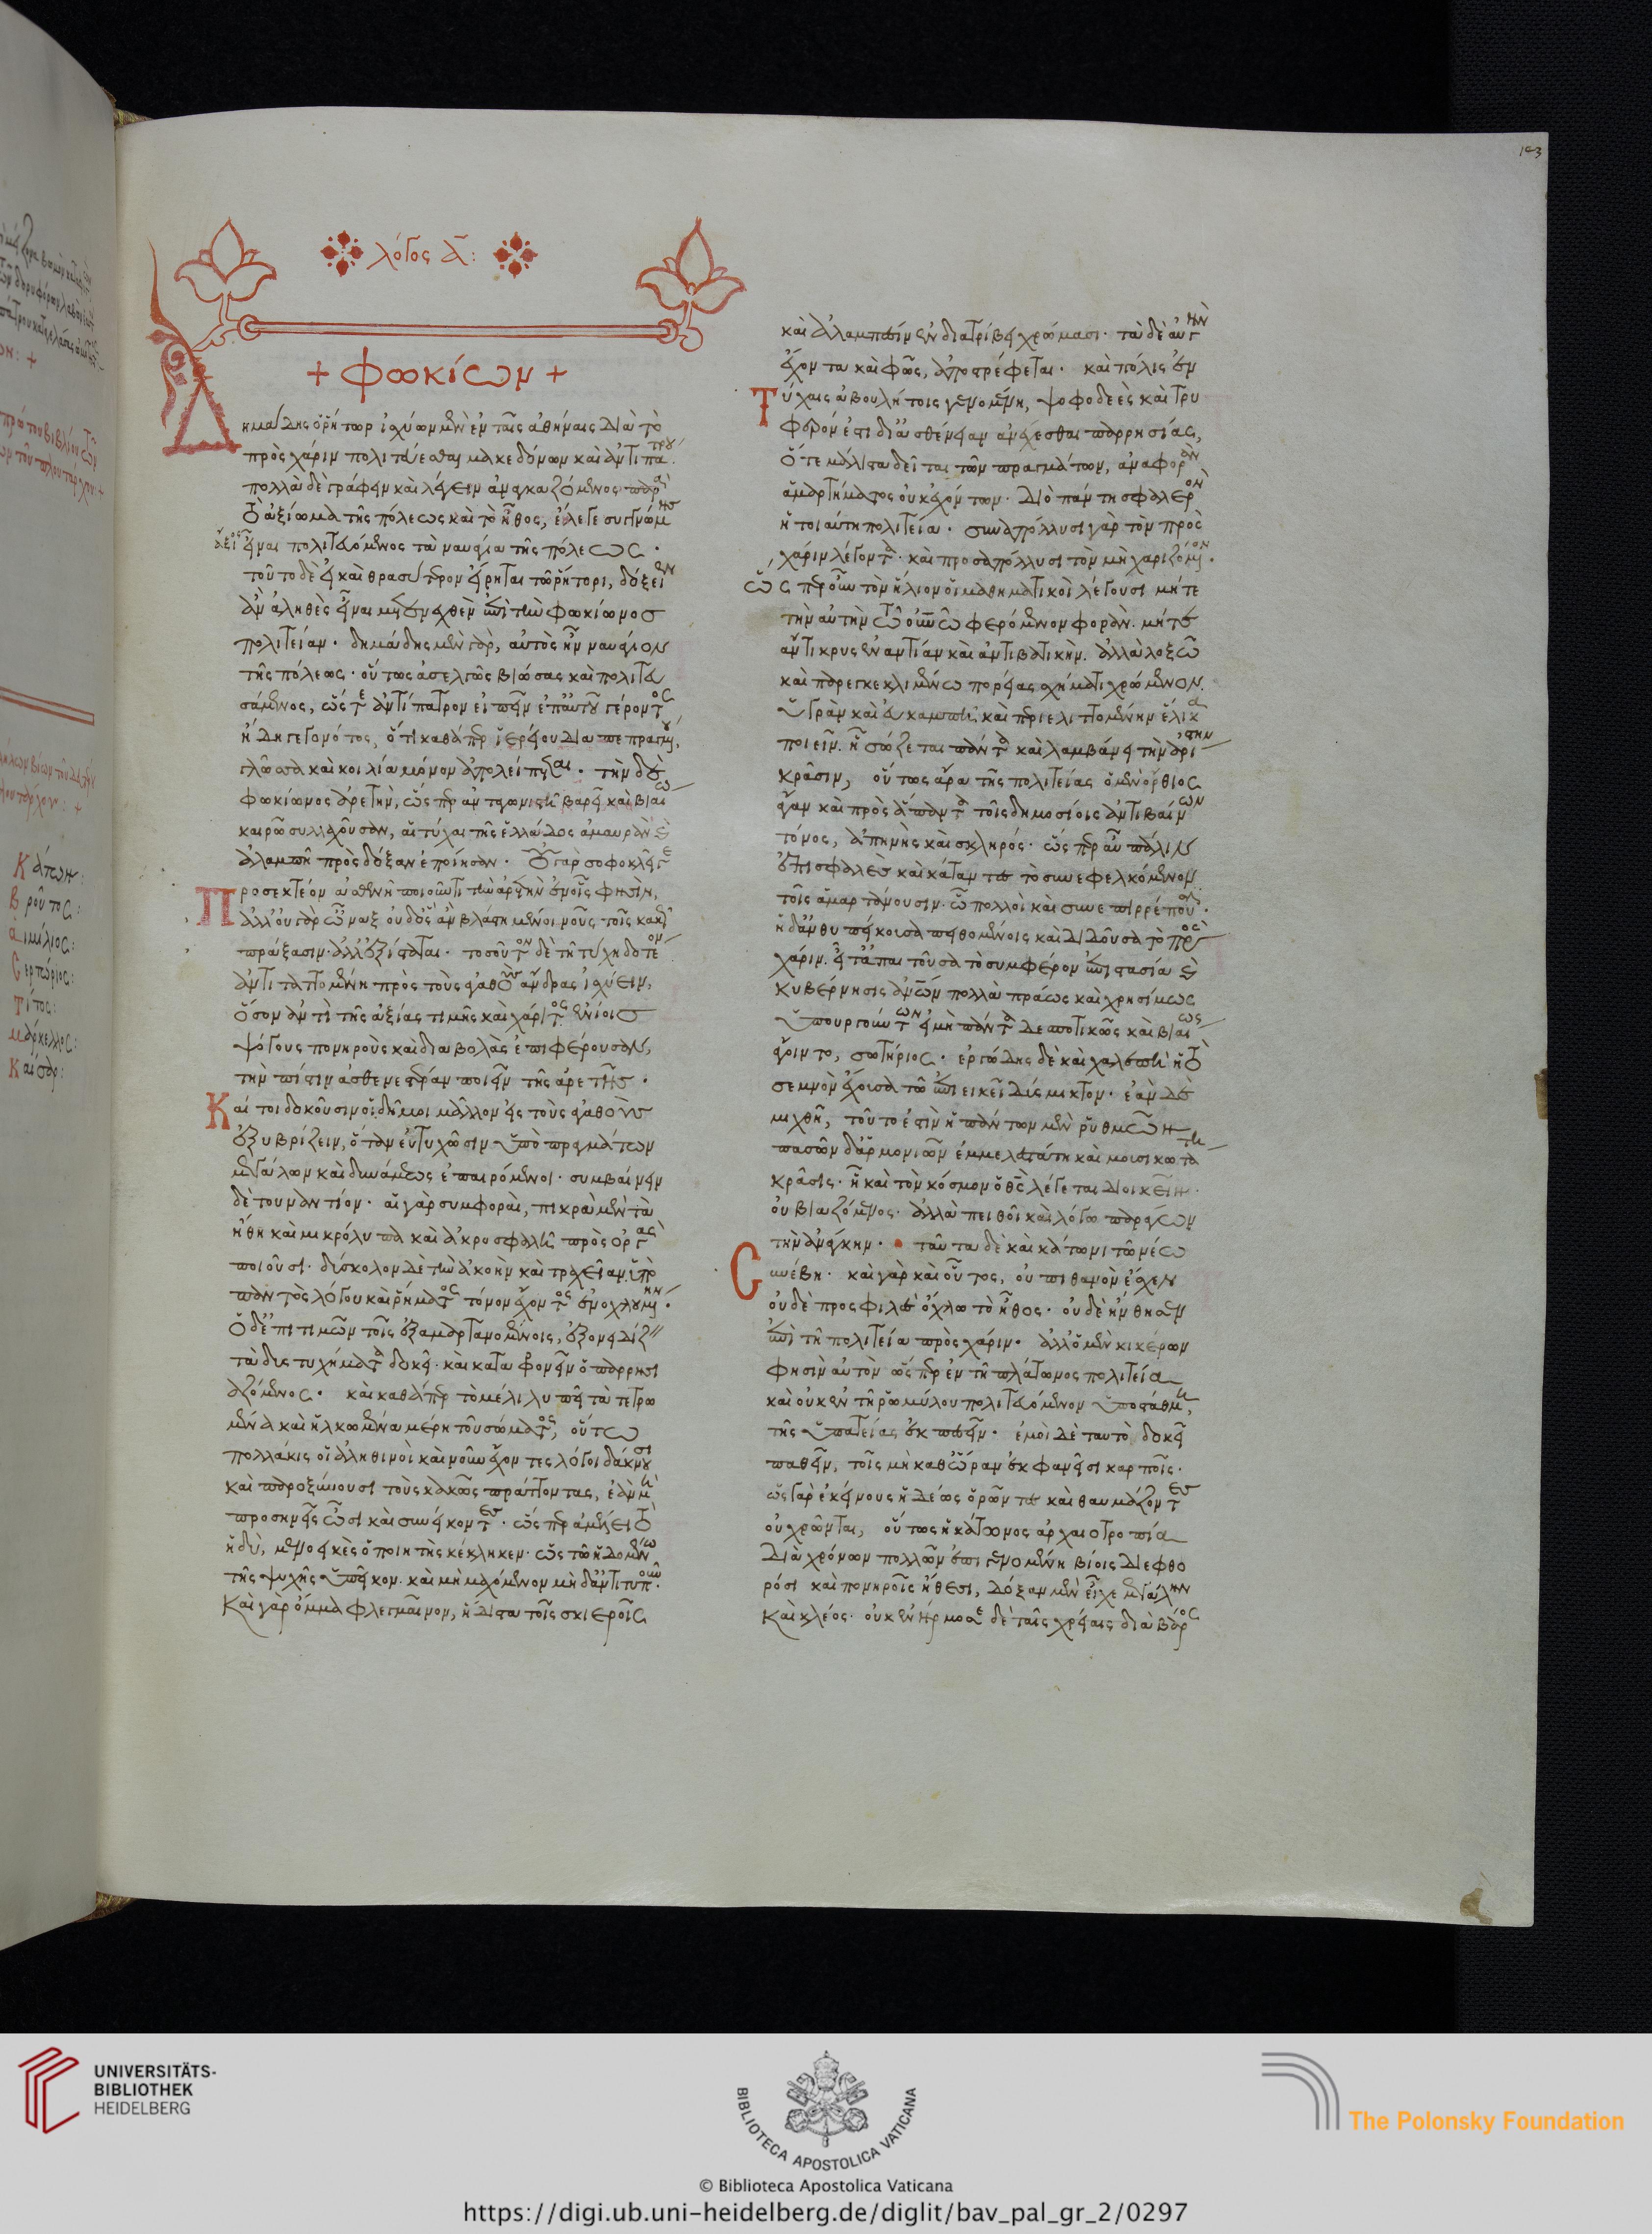 143
λόγος α:
+ φωκίων +
Δημάδης ὁ ῥήτωρ ἰσχύων μὲν ἐν ταῖς ἀθήναις διὰ τὸ
πρὸς χάριν πολιτεύεσθαι μακεδόνων καὶ ἀντιπάτρου
πολλὰ δὲ γράφειν καὶ λέγειν ἀναγκαζόμενος παρὰ
τὸ ἀξίωμα τῆς πόλεως καὶ τὸ ἦθος, ἔλεγε συγγνώμης
ἄξιος εἶναι πολιτευόμενος τὰ ναυάγια τῆς πόλεως.
τοῦτο δὲ εἰ καὶ θρασύτερον εἴρηται τῷ ῥήτορι, δόξειεν
ἂν ἀληθὲς εἶναι μετενεχθὲν ἐπὶ τὴν φωκίωνος
πολιτείαν. δημάδης μὲν γὰρ, αὐτὸς ἦν ναυάγιον
τῆς πόλεως. οὕτως ἀσελγῶς βιώσας καὶ πολιτευ
σάμενος, ὥστε ἀντίπατρον εἰπεῖν ἐπ' αὐτοῦ γέροντος
ἤδη γεγονότος, ὅτι καθάπερ ἱερείου διαπεπραγμένου,
γλῶσσα καὶ κοιλία μόνον ἀπολείπεται. τὴν δὲ
φωκίωνος ἀρετὴν, ὥσπερ ἀνταγωνιστῇ βαρεῖ καὶ βιαίῳ
καιρῷ συλλαχοῦσαν, αἱ τύχαι τῆς ἑλλάδος ἀμαυρὰν καὶ
ἀλαμπῆ πρὸς δόξαν ἐποίησαν. οὐ γὰρ σοφοκλεῖ γε
προσεκτέον ἀσθενῆ ποιοῦντι τὴν ἀρετὴν ἐν οἷς φησὶν,
ἀλλ' οὐ γὰρ ὦναξ οὐδ' ὃς ἂν βλάστῃ μένει νοῦς τοῖς κακῶς
πράξασιν. ἀλλ' ἐξίσταται. τοσοῦτον δὲ τῇ τύχῃ δοτέον
ἀντιταττομένῃ πρὸς τοὺς ἀγαθοὺς ἄνδρας ἰσχύειν,
ὅσον ἀντὶ τῆς ἀξίας τιμῆς καὶ χάριτος ἐνίοις
ψόγους πονηροὺς καὶ διαβολὰς ἐπιφέρουσαν,
τὴν πίστιν ἀσθενεστέραν ποιεῖν τῆς ἀρετῆς.
Καίτοι δοκοῦσιν οἱ δῆμοι μᾶλλον εἰς τοὺς ἀγαθοὺς
ἐξυβρίζειν, ὅταν εὐτυχῶσιν ὑπὸ πραγμάτων
μεγάλων καὶ δυνάμεως ἐπαιρόμενοι. συμβαίνειν
δὲ τουναντίον. αἱ γὰρ συμφοραὶ, πικρὰ μὲν τὰ
ἤθη καὶ μικρόλυπα καὶ ἀκροσφαλῆ πρὸς ὀργὰς
ποιοῦσι. δύσκολον δὲ τὴν ἀκοὴν καὶ τραχεῖαν. ὑπὸ
παντὸς λόγου καὶ ῥήματος τόνον ἔχοντος ἐνοχλουμένην.
ὁ δ' ἐπιτιμῶν τοῖς ἐξαμαρτανομένοις, ἐξονειδίζειν
τὰ δυστυχήματα δοκεῖ. καὶ καταφρονεῖν ὁ παρρησι
αζόμενος. καὶ καθάπερ τὸ μέλι λυπεῖ τὰ τετρω
μένα καὶ ἡλκωμένα μέρη τοῦ σώματος, οὕτω
πολλάκις οἱ ἀληθινοὶ καὶ νοῦν ἔχοντες λόγοι δάκνουσι
καὶ παροξύνουσι τοὺς κακῶς πράττοντας, ἐὰν μὴ
προσηνεῖς ὦσι καὶ συνείκοντες. ὥσπερ ἀμέλει τὸ
ἡδὺ, μενοεικὲς ὁ ποιητὴς κέκληκεν. ὡς τῷ ἡδομένῳ
τῆς ψυχῆς ὑπεῖκον. καὶ μὴ μαχόμενον μηδ' ἀντιτυποῦν.
Καὶ γὰρ ὄμμα φλεγμαῖνον, ἥδιστα τοῖς σκιεροῖς
καὶ ἀλαμπέσιν ἐνδιατρίβει χρώμασι. τὰ δὲ αὐγὴν
ἔχοντα καὶ φῶς, ἀποστρέφεται. καὶ πόλις ἐν
Τύχαις ἀβουλήτοις γενομένη, ψοφοδεὲς καὶ τρυ
φερόν ἐστι δι' ἀσθένειαν ἀνέχεσθαι παρρησίας,
ὅτε μάλιστα δεῖται τῶν πραγμάτων, ἀναφορὰν
ἁμαρτήματος οὐκ ἐχόντων. διὸ πάντη σφαλερὸν
ἡ τοιαύτη πολιτεία. συναπόλλυσι γὰρ τὸν πρὸς
χάριν λέγοντα. καὶ προσαπόλλυσι τὸν μὴ χαριζόμενον.
ὥσπερ οὖν τὸν ἥλιον οἱ μαθηματικοὶ λέγουσι μήτε
τὴν αὐτὴν τῷ οὐρανῷ φερόμενον φορὰν. μήτε
ἄντικρυς ἐναντίαν καὶ ἀντιβατικὴν. ἀλλὰ λοξῷ
καὶ παρεγκεκλιμένῳ πορείας σχήματι χρώμενον.
ὑγρὰν καὶ εὐκαμπῆ καὶ περιελιττομένην ἕλικα
ποιεῖν. ᾗ σώζεται πάντα καὶ λαμβάνει τὴν ἀρίστην
κρᾶσιν, οὕτως ἄρα τῆς πολιτείας ὁ μὲν ὄρθιος
ἄγαν καὶ πρὸς ἅπαντα τοῖς δημοσίοις ἀντιβαίνων
τόνος, ἀπηνὴς καὶ σκληρός. ὥσπερ αὖ πάλιν
ἐπισφαλὲς καὶ κάταντες τὸ συνεφελκόμενον
τοῖς ἁμαρτάνουσιν. ᾧ πολλοὶ καὶ συνεπιρρέπουσιν.
ἡ δ' ἀνθυπείκουσα πειθομένοις καὶ διδοῦσα τὸ πρὸς
χάριν. εἶτ' ἀπαιτοῦσα τὸ συμφέρον ἐπιστασία καὶ
κυβέρνησις ἀνθρώπων πολλὰ πράως καὶ χρησίμως
ὑπουργούντων εἰ μὴ πάντα δεσποτικῶς καὶ βιαίως
ἄγοιντο, σωτήριος. ἐργώδης δὲ καὶ χαλεπὴ ἡ τὸ
σεμνὸν ἔχουσα τῷ ἐπιεικεῖ δύσμικτον. ἐὰν δὲ
μιχθῇ, τοῦτό ἐστιν ἡ πάντων μὲν ῥυθμῶν
πασῶν δ' ἁρμονιῶν ἐμμελεστάτη καὶ μουσικωτάτη
κρᾶσις. ᾗ καὶ τὸν κόσμον ὁ θς λέγεται διοικεῖν.
οὐ βιαζόμενος. ἀλλὰ πειθοῖ καὶ λόγῳ παράγων
τὴν ἀνάγκην. ταῦτα δὲ καὶ κάτωνι τῷ νέῳ
Συνέβη. καὶ γὰρ καὶ οὗτος, οὐ πιθανὸν ἔσχεν
οὐδὲ προσφιλὲς ὄχλῳ τὸ ἦθος. οὐδὲ ἤνθησεν
ἐπὶ τῇ πολιτείᾳ πρὸς χάριν. ἀλλ' ὁ μὲν κικέρων
φησὶν αὐτὸν ὥσπερ ἐν τῇ πλάτωνος πολιτείᾳ
καὶ οὐκ ἐν τῇ ῥωμύλου πολιτευόμενον ὑποστάθμῃ,
τῆς ὑπατείας ἐκπεσεῖν. ἐμοὶ δὲ ταυτὸ δοκεῖ
παθεῖν, τοῖς μὴ καθ' ὥραν ἐκφανεῖσι καρποῖς.
ὡς γὰρ ἐκείνους ἡδέως ὁρῶντες καὶ θαυμάζοντες
οὐ χρῶνται, οὕτως ἡ κάτωνος ἀρχαιοτροπία
διὰ χρόνων πολλῶν ἐπιγενομένη βίοις διεφθο
ρόσι καὶ πονηροῖς ἤθεσι, δόξαν μὲν εἶχε μεγάλην
Καὶ κλέος. οὐκ ἐνήρμοσε δὲ ταῖς χρείαις διὰ βάρος
Κάτων:
Βροῦτος:
αιμίλιος:
Σερτώριος:
τίτος:
μάρκελλος:
Καῖσαρ:
UNIVERSITÄTS-
BIBLIOTHEK
HEIDELBERG
BIBLIOTECA APOSTOLICA VATICANA
The Polonsky Foundation
© Biblioteca Apostolica Vaticana
https://digi.ub.uni-heidelberg.de/diglit/bav_pal_gr_2/0297